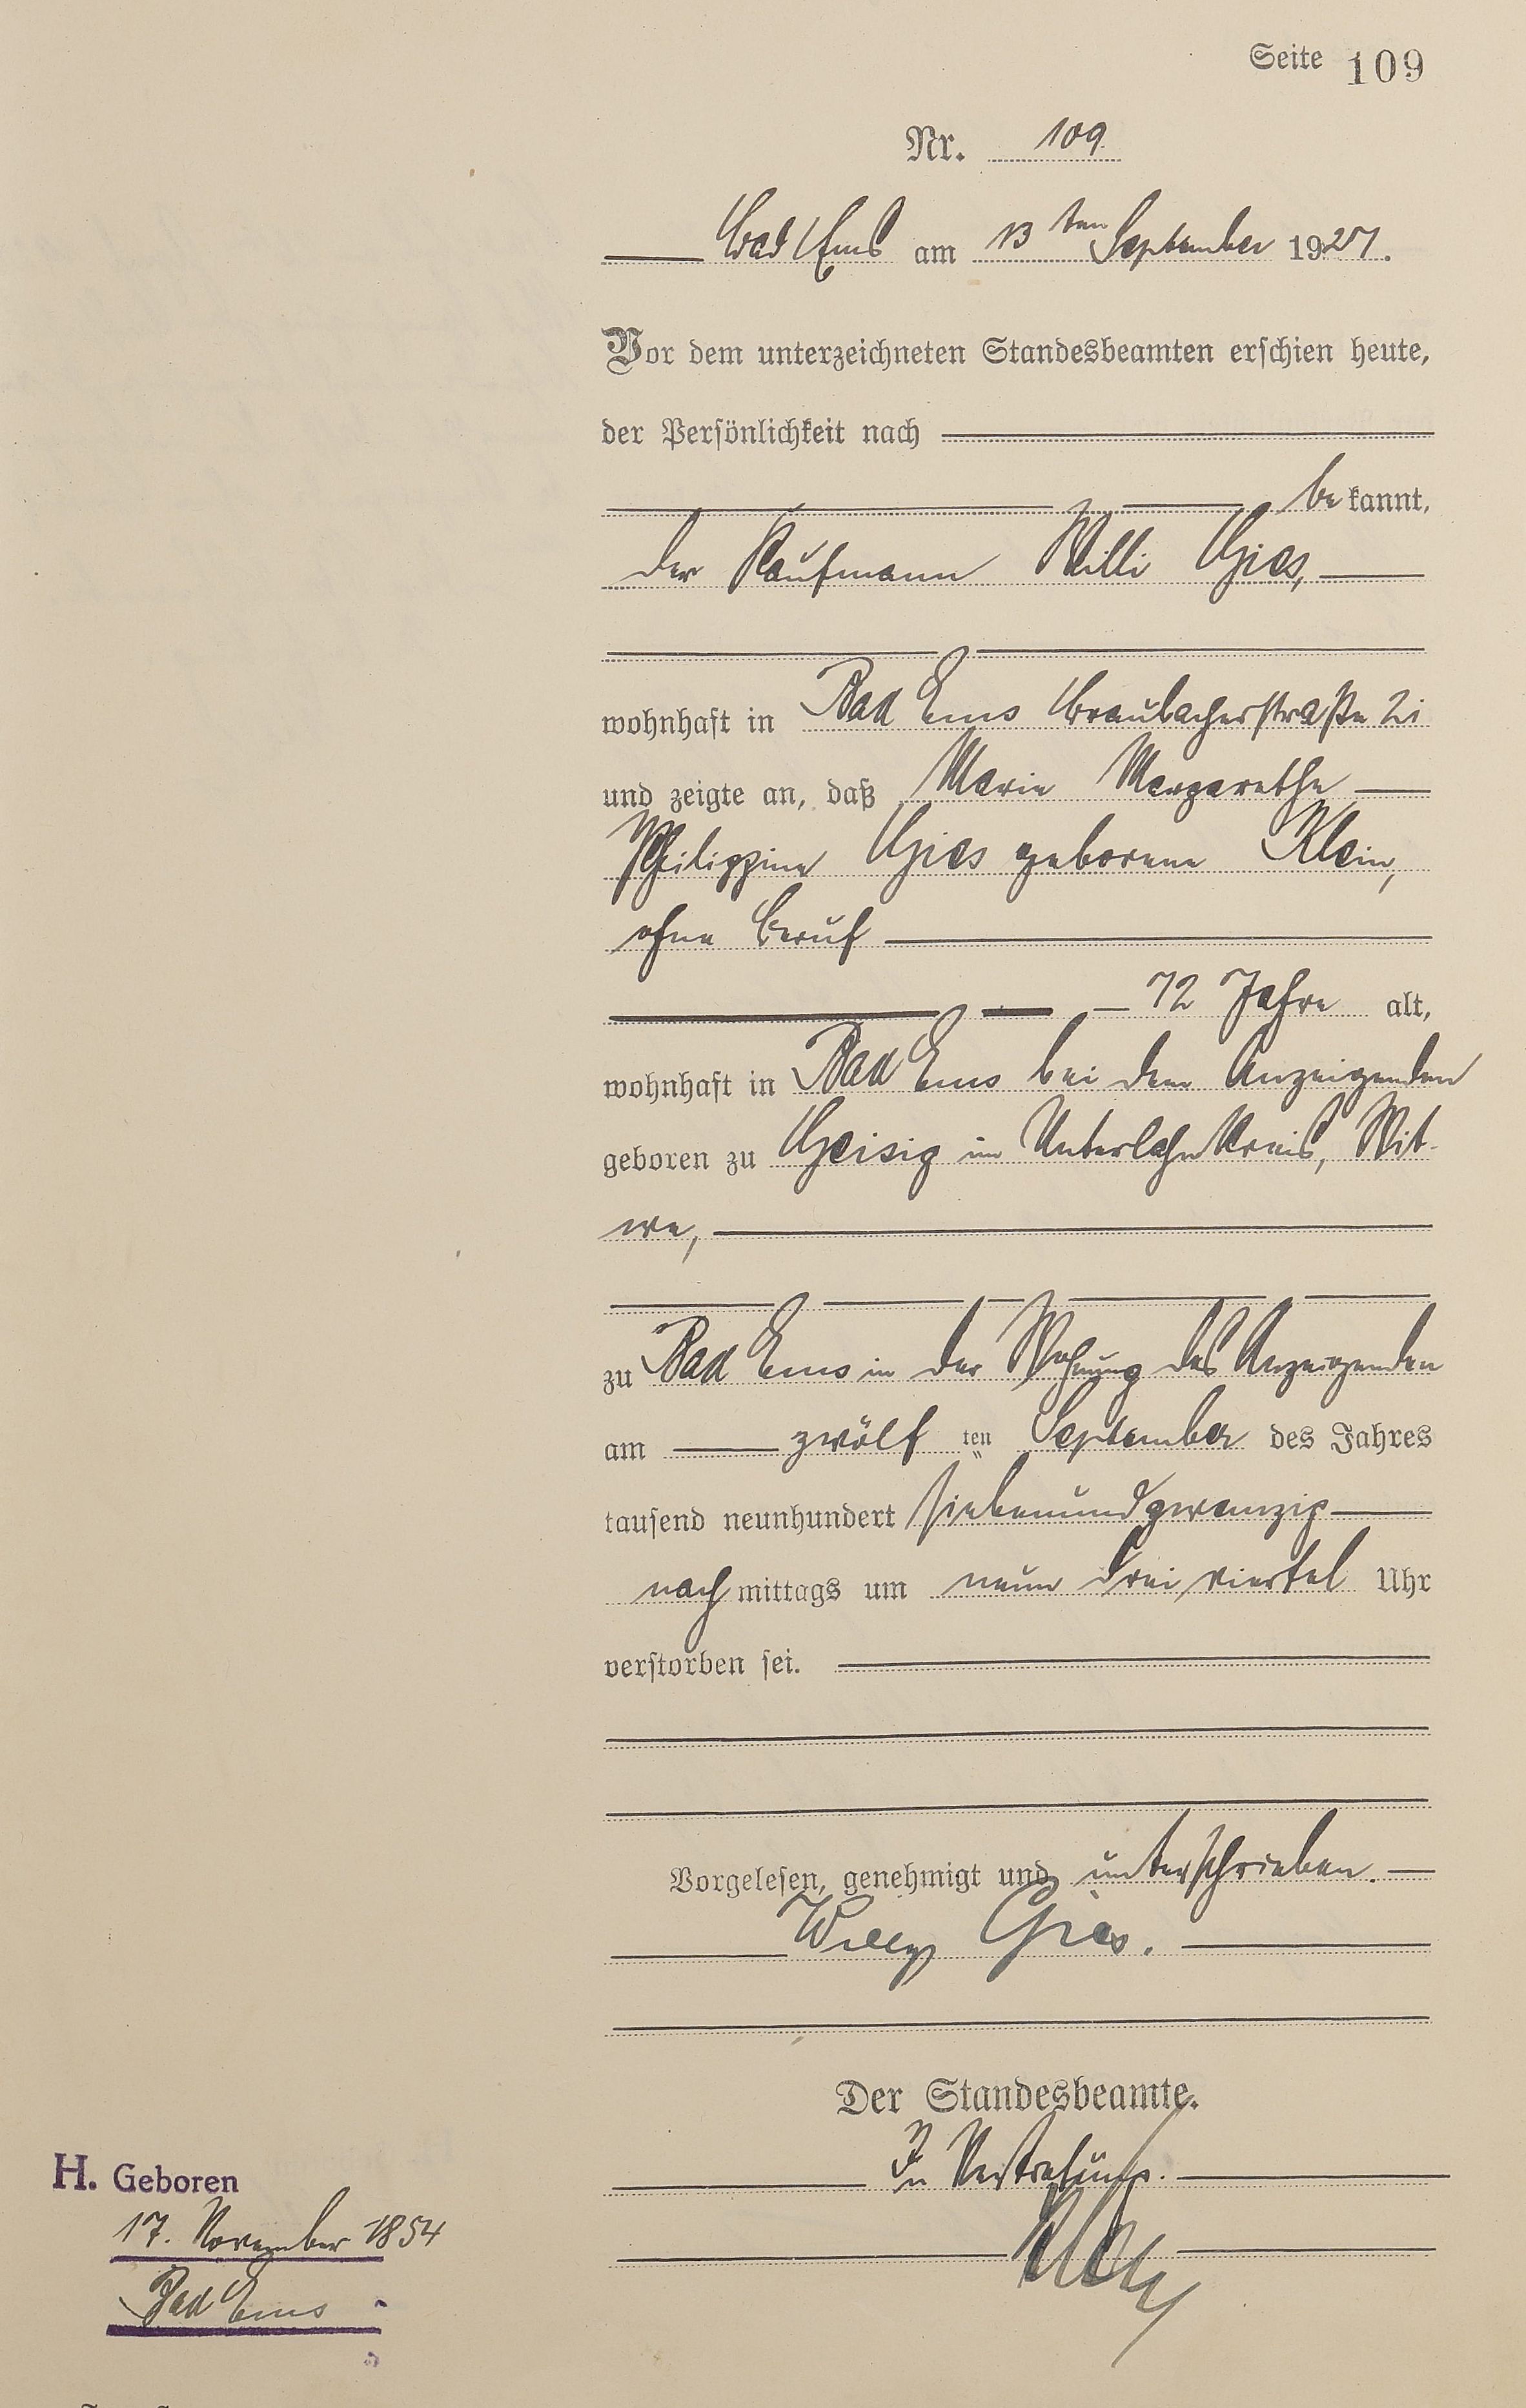 Seite 109
Nr. 109
Bad Ems am 13ten September 1927.
Vor dem unterzeichneten Standesbeamten erschien heute,
der Persönlichkeit nach
be kannt,
der Kaufmann Willi Gies,
wohnhaft in Bad Ems Braubacherstraße 21
und zeigte an, daß Marie Margarethe
Philippine Gies geborene Klein,
ohne Beruf
72 Jahre alt,
wohnhaft in Bad Ems bei dem Anzeigenden
geboren zu Geisig im Unterlahnkreis, Wit-
we,
zu Bad Ems in der Wohnung des Anzeigenden
am zwölf ten September des Jahres
tausend neunhundert siebenundzwanzig
nach mittags um neun dreiviertel Uhr
verstorben sei.
Vorgelesen, genehmigt und unterschrieben.
Willy Gies.
Der Standesbeamte.
In Vertretung.
H. Geboren
17. November 1854
Bad Ems